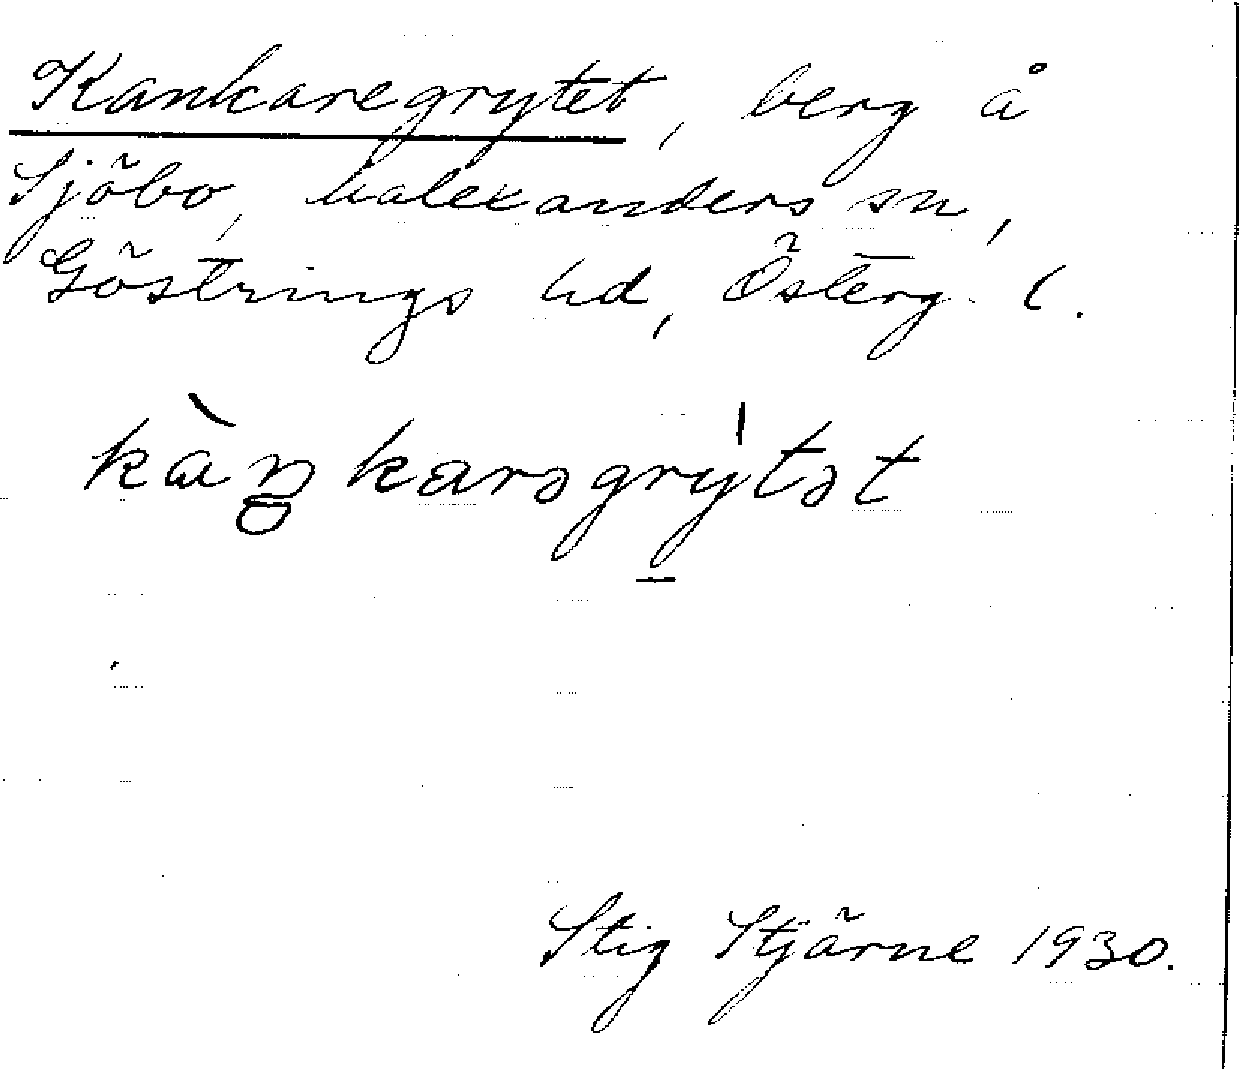 Kankaregrytet, berg å
Sjöbo, Kalexanders sn,
Göstrings hd, Österg. l.
kàŋkarəgrýtət
Stig Stjärne 1930.